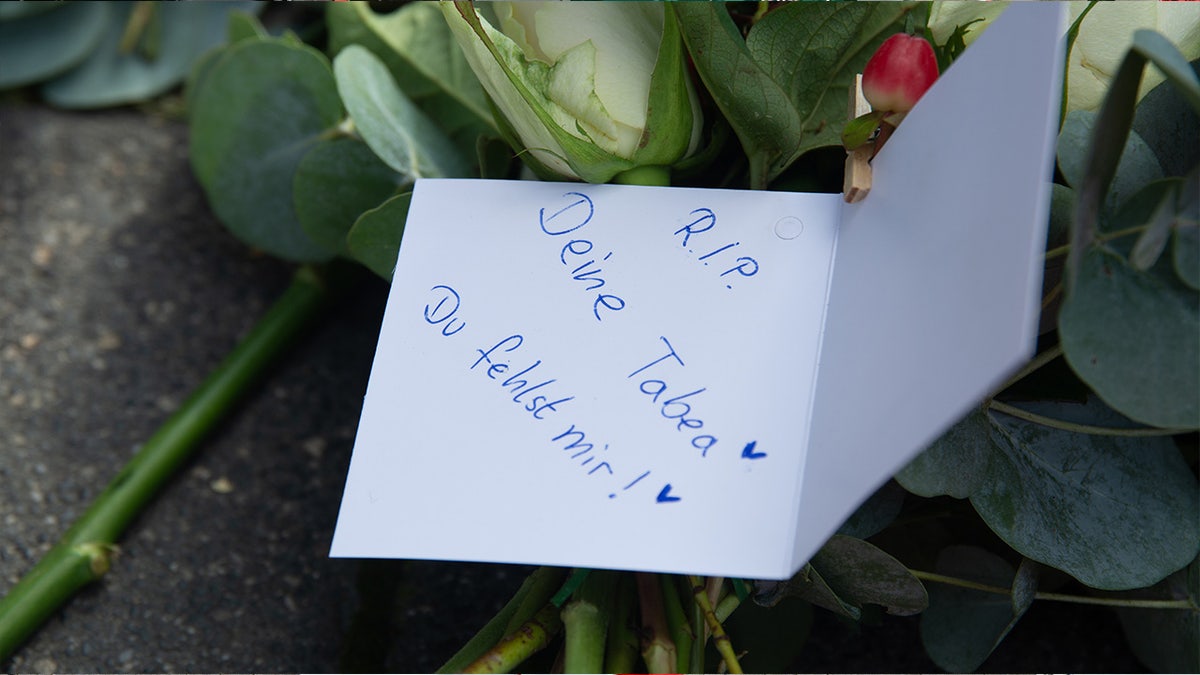 R.I.P.
Deine Tabea
Du fehlst mir!